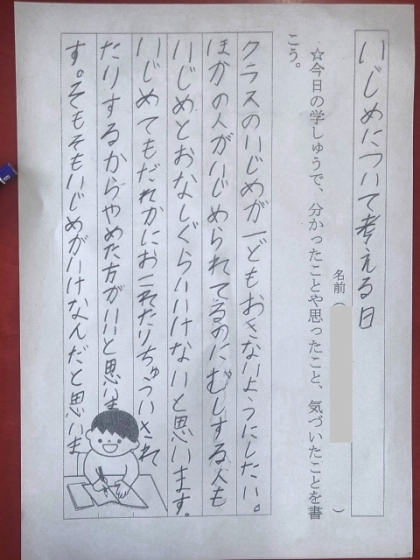 いじめについて考える日
☆今日の学しゅうで、分かったことや思ったこと、気づいたことを書
こう。
名前（　　　）
クラスのいじめが一どもおきないようにしたい。
ほかの人がいじめられてるのにむしする人も
いじめとおなしぐらいいけないと思います。
いじめてもだれかにおこれたりちゅういされ
たりするからやめた方がいいと思いま
す。そもそもいじめがいけなんだと思いま